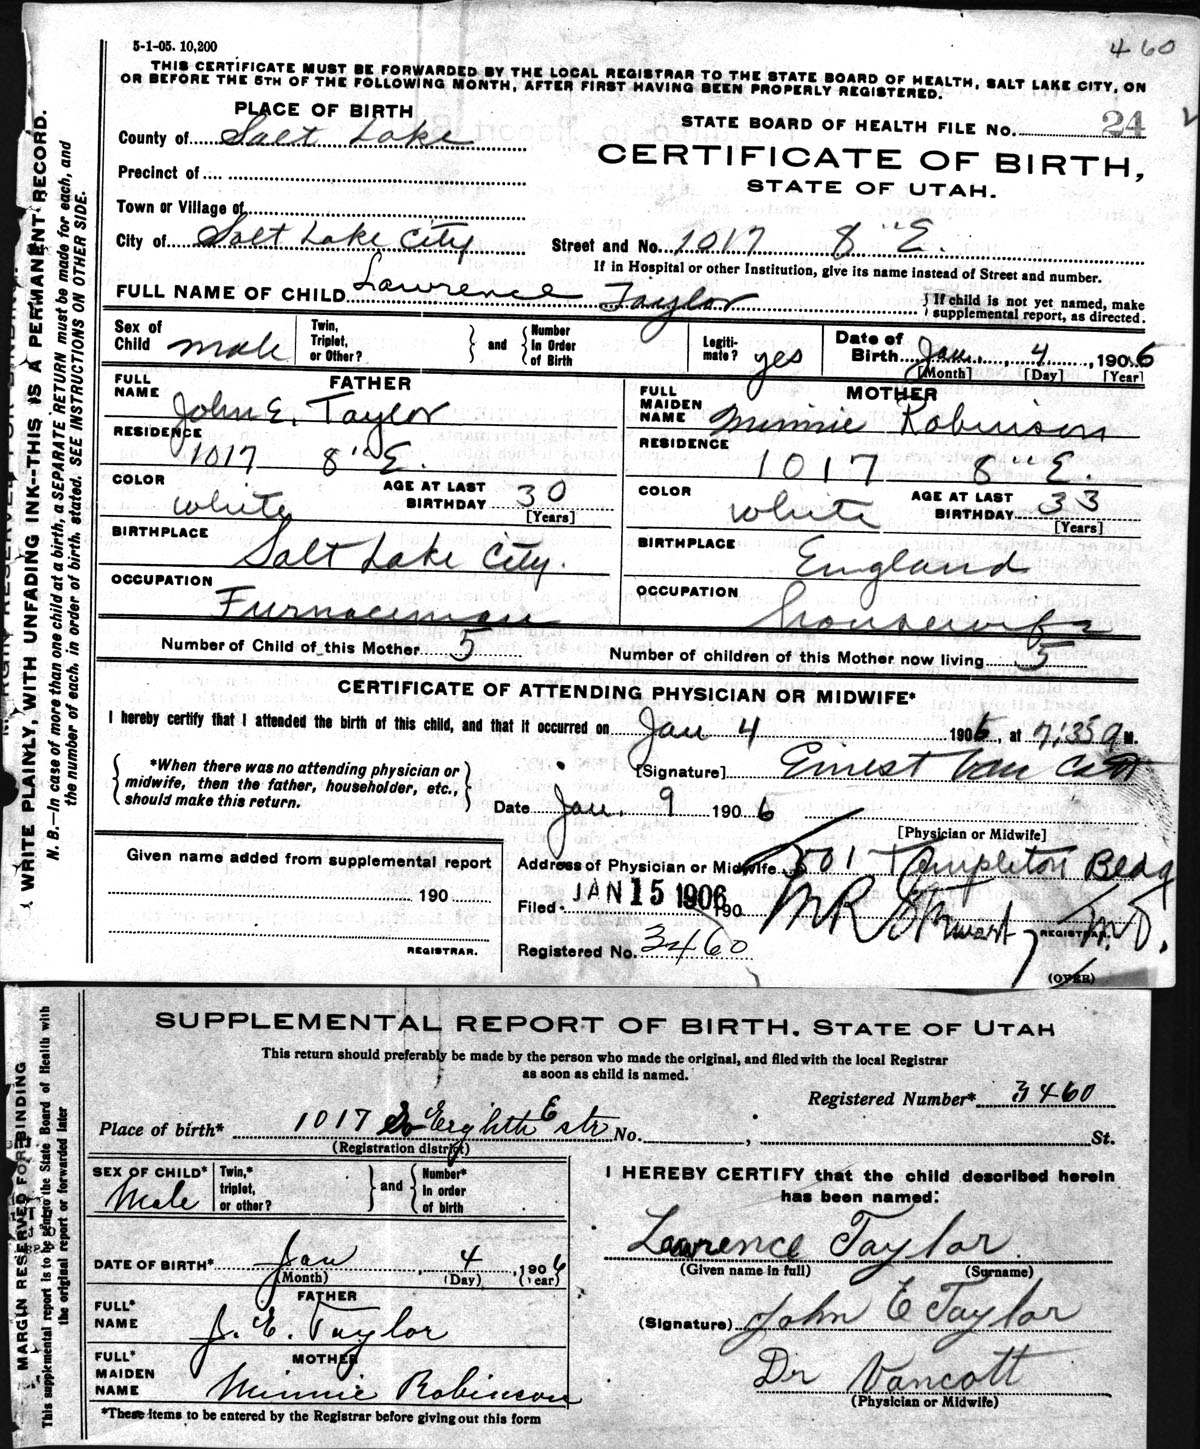 5-1-05. 10,200
460
THIS CERTIFICATE MUST BE FORWARDED BY THE LOCAL REGISTRAR TO THE STATE BOARD OF HEALTH, SALT LAKE CITY, ON
OR BEFORE THE 5TH OF THE FOLLOWING MONTH, AFTER FIRST HAVING BEEN PROPERLY REGISTERED.
PLACE OF BIRTH
STATE BOARD OF HEALTH FILE No. 24
County of Salt Lake
CERTIFICATE OF BIRTH,
STATE OF UTAH.
Precinct of
Town or Village of
City of Salt Lake City Street and No. 1017 8" E.
If in Hospital or other Institution, give its name instead of Street and number.
FULL NAME OF CHILD Lawrence Taylor { If child is not yet named, make
supplemental report, as directed.
Sex of Child male Twin, Triplet, or Other? } and { Number In Order of Birth Legiti-mate? yes Date of Birth Jan. 4, 1906
[Month] [Day] [Year]
FULL NAME FATHER John E. Taylor
RESIDENCE 1017 8" E.
COLOR white AGE AT LAST BIRTHDAY 30 [Years]
BIRTHPLACE Salt Lake City.
OCCUPATION Furnaceman
FULL MAIDEN NAME MOTHER Minnie Robinson
RESIDENCE 1017 8" E.
COLOR white AGE AT LAST BIRTHDAY 33 [Years]
BIRTHPLACE England
OCCUPATION housewife
Number of Child of this Mother 5 Number of children of this Mother now living 5
CERTIFICATE OF ATTENDING PHYSICIAN OR MIDWIFE*
I hereby certify that I attended the birth of this child, and that it occurred on Jan 4 1906, at 7:35 a M.
{ *When there was no attending physician or
midwife, then the father, householder, etc.,
should make this return. }
[Signature] Ernest Van Cott
Date Jan. 9 1906
[Physician or Midwife]
Given name added from supplemental report
190
REGISTRAR.
Address of Physician or Midwife 501 Templeton Bldg
Filed JAN 15 1906 190
M R Stewart, M.D.
REGISTRAR
Registered No. 3460
(OVER)
WRITE PLAINLY, WITH UNFADING INK--THIS IS A PERMANENT RECORD.
N. B.—In case of more than one child at a birth, a SEPARATE RETURN must be made for each, and
the number of each, in order of birth, stated. SEE INSTRUCTIONS ON OTHER SIDE.
SUPPLEMENTAL REPORT OF BIRTH, STATE OF UTAH
This return should preferably be made by the person who made the original, and filed with the local Registrar
as soon as child is named.
Registered Number* 3460
Place of birth* 1017 So Eighth E str No. , St.
(Registration district)
SEX OF CHILD* Male Twin,* triplet, or other? } and { Number* in order of birth
DATE OF BIRTH* Jan 4, 1906
(Month) (Day) (Year)
FULL* NAME FATHER J. E. Taylor
FULL* MAIDEN NAME MOTHER Minnie Robinson
*These items to be entered by the Registrar before giving out this form
I HEREBY CERTIFY that the child described herein
has been named:
Lawrence Taylor
(Given name in full) (Surname)
(Signature) John E Taylor
Dr Vancott
(Physician or Midwife)
MARGIN RESERVED FOR BINDING
This supplemental report is to be sent to the State Board of Health with
the original report or forwarded later